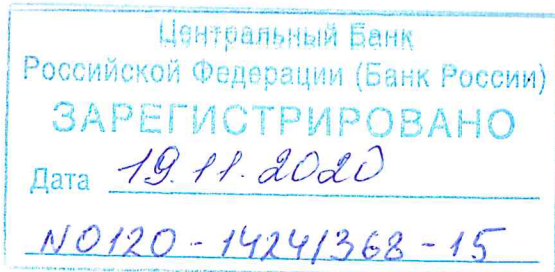 Центральный Банк
Российской Федерации (Банк России)
ЗАРЕГИСТРИРОВАНО
Дата 19.11.2020
№0120-14241368-15